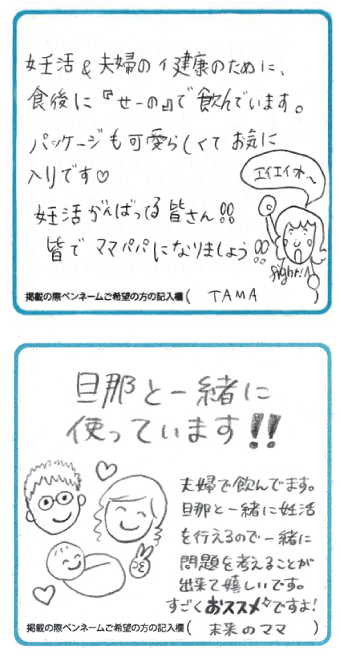 妊活&夫婦の健康のために、
食後に『せーの』で飲んでいます。
パッケージも可愛らしくてお気に
入りです♡
エイエイオ〜
妊活がんばってる皆さん!!
皆でママパパになりましょう!!
fight!!
掲載の際ペンネームご希望の方の記入欄( TAMA )
旦那と一緒に
使っています!!
夫婦で飲んでます。
旦那と一緒に妊活
を行えるので一緒に
問題を考えることが
出来て嬉しいです。
すごくおススメですよ!
掲載の際ペンネームご希望の方の記入欄( 未来のママ )